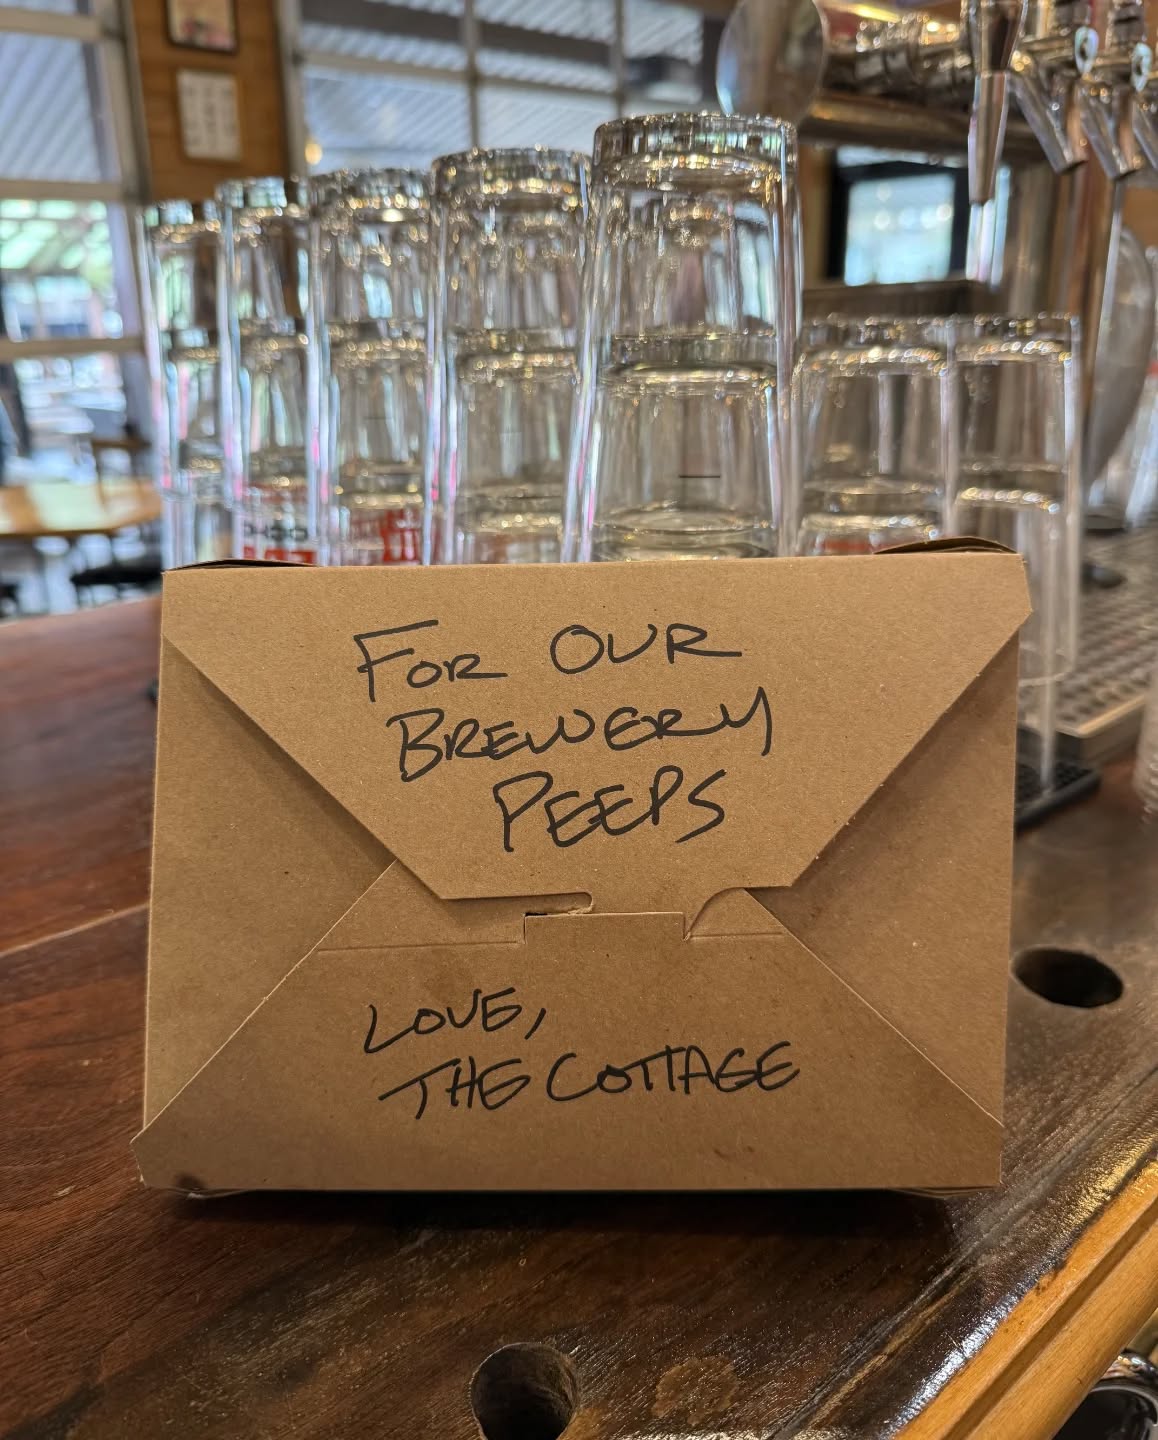 FOR OUR
BREWERY
PEEPS
LOVE,
THE COTTAGE